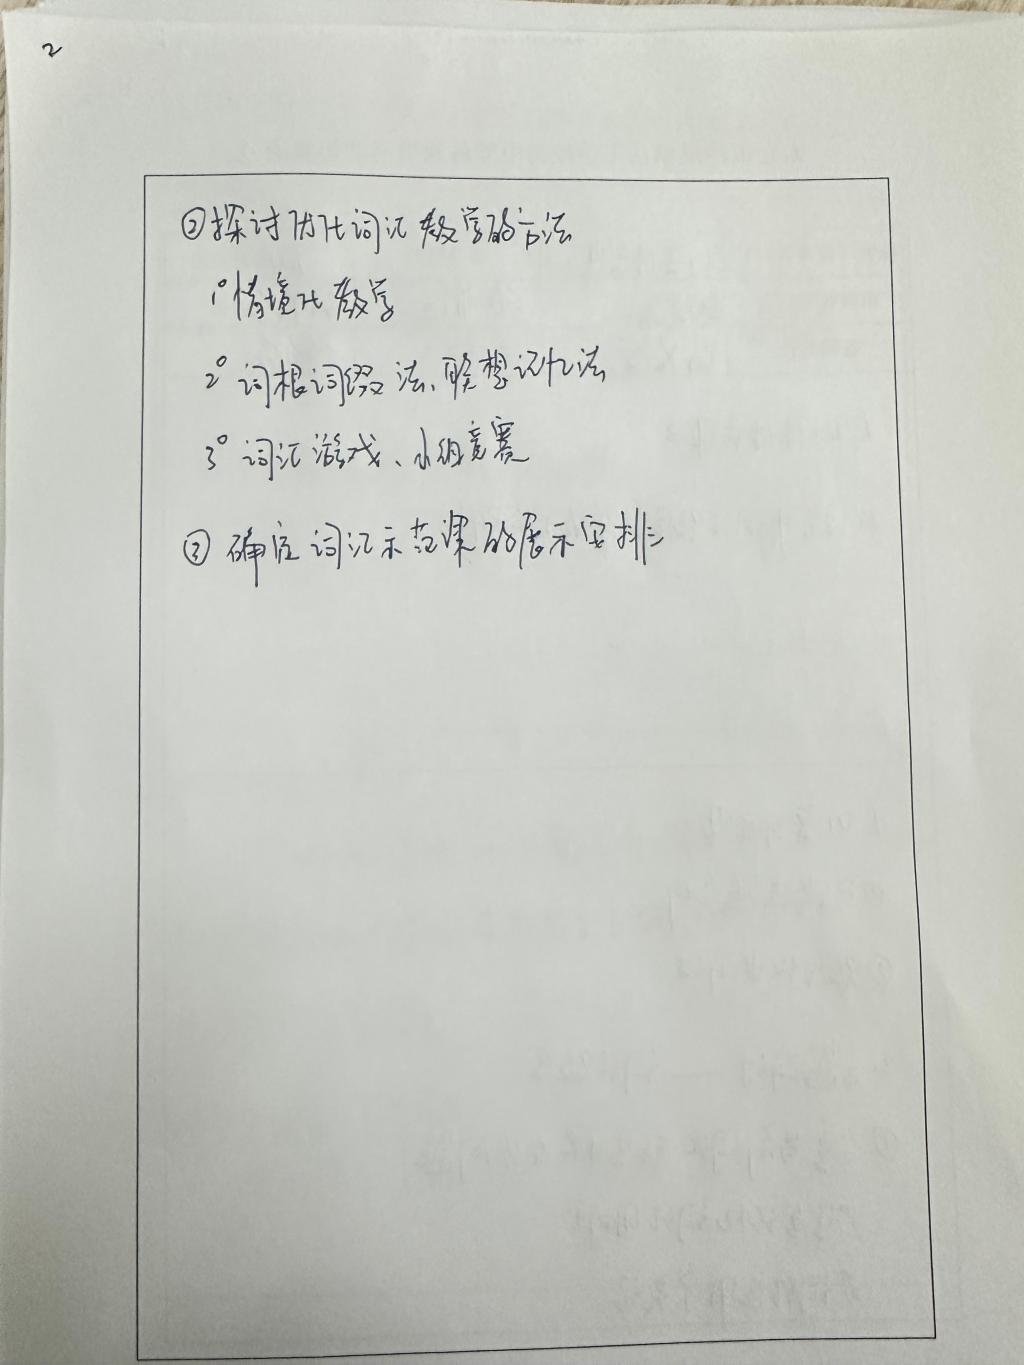 2
②探讨优化词汇教学的方法
1°情境化教学
2°词根词缀法、联想记忆法
3°词汇游戏、小组竞赛
③确定词汇示范课的展示安排